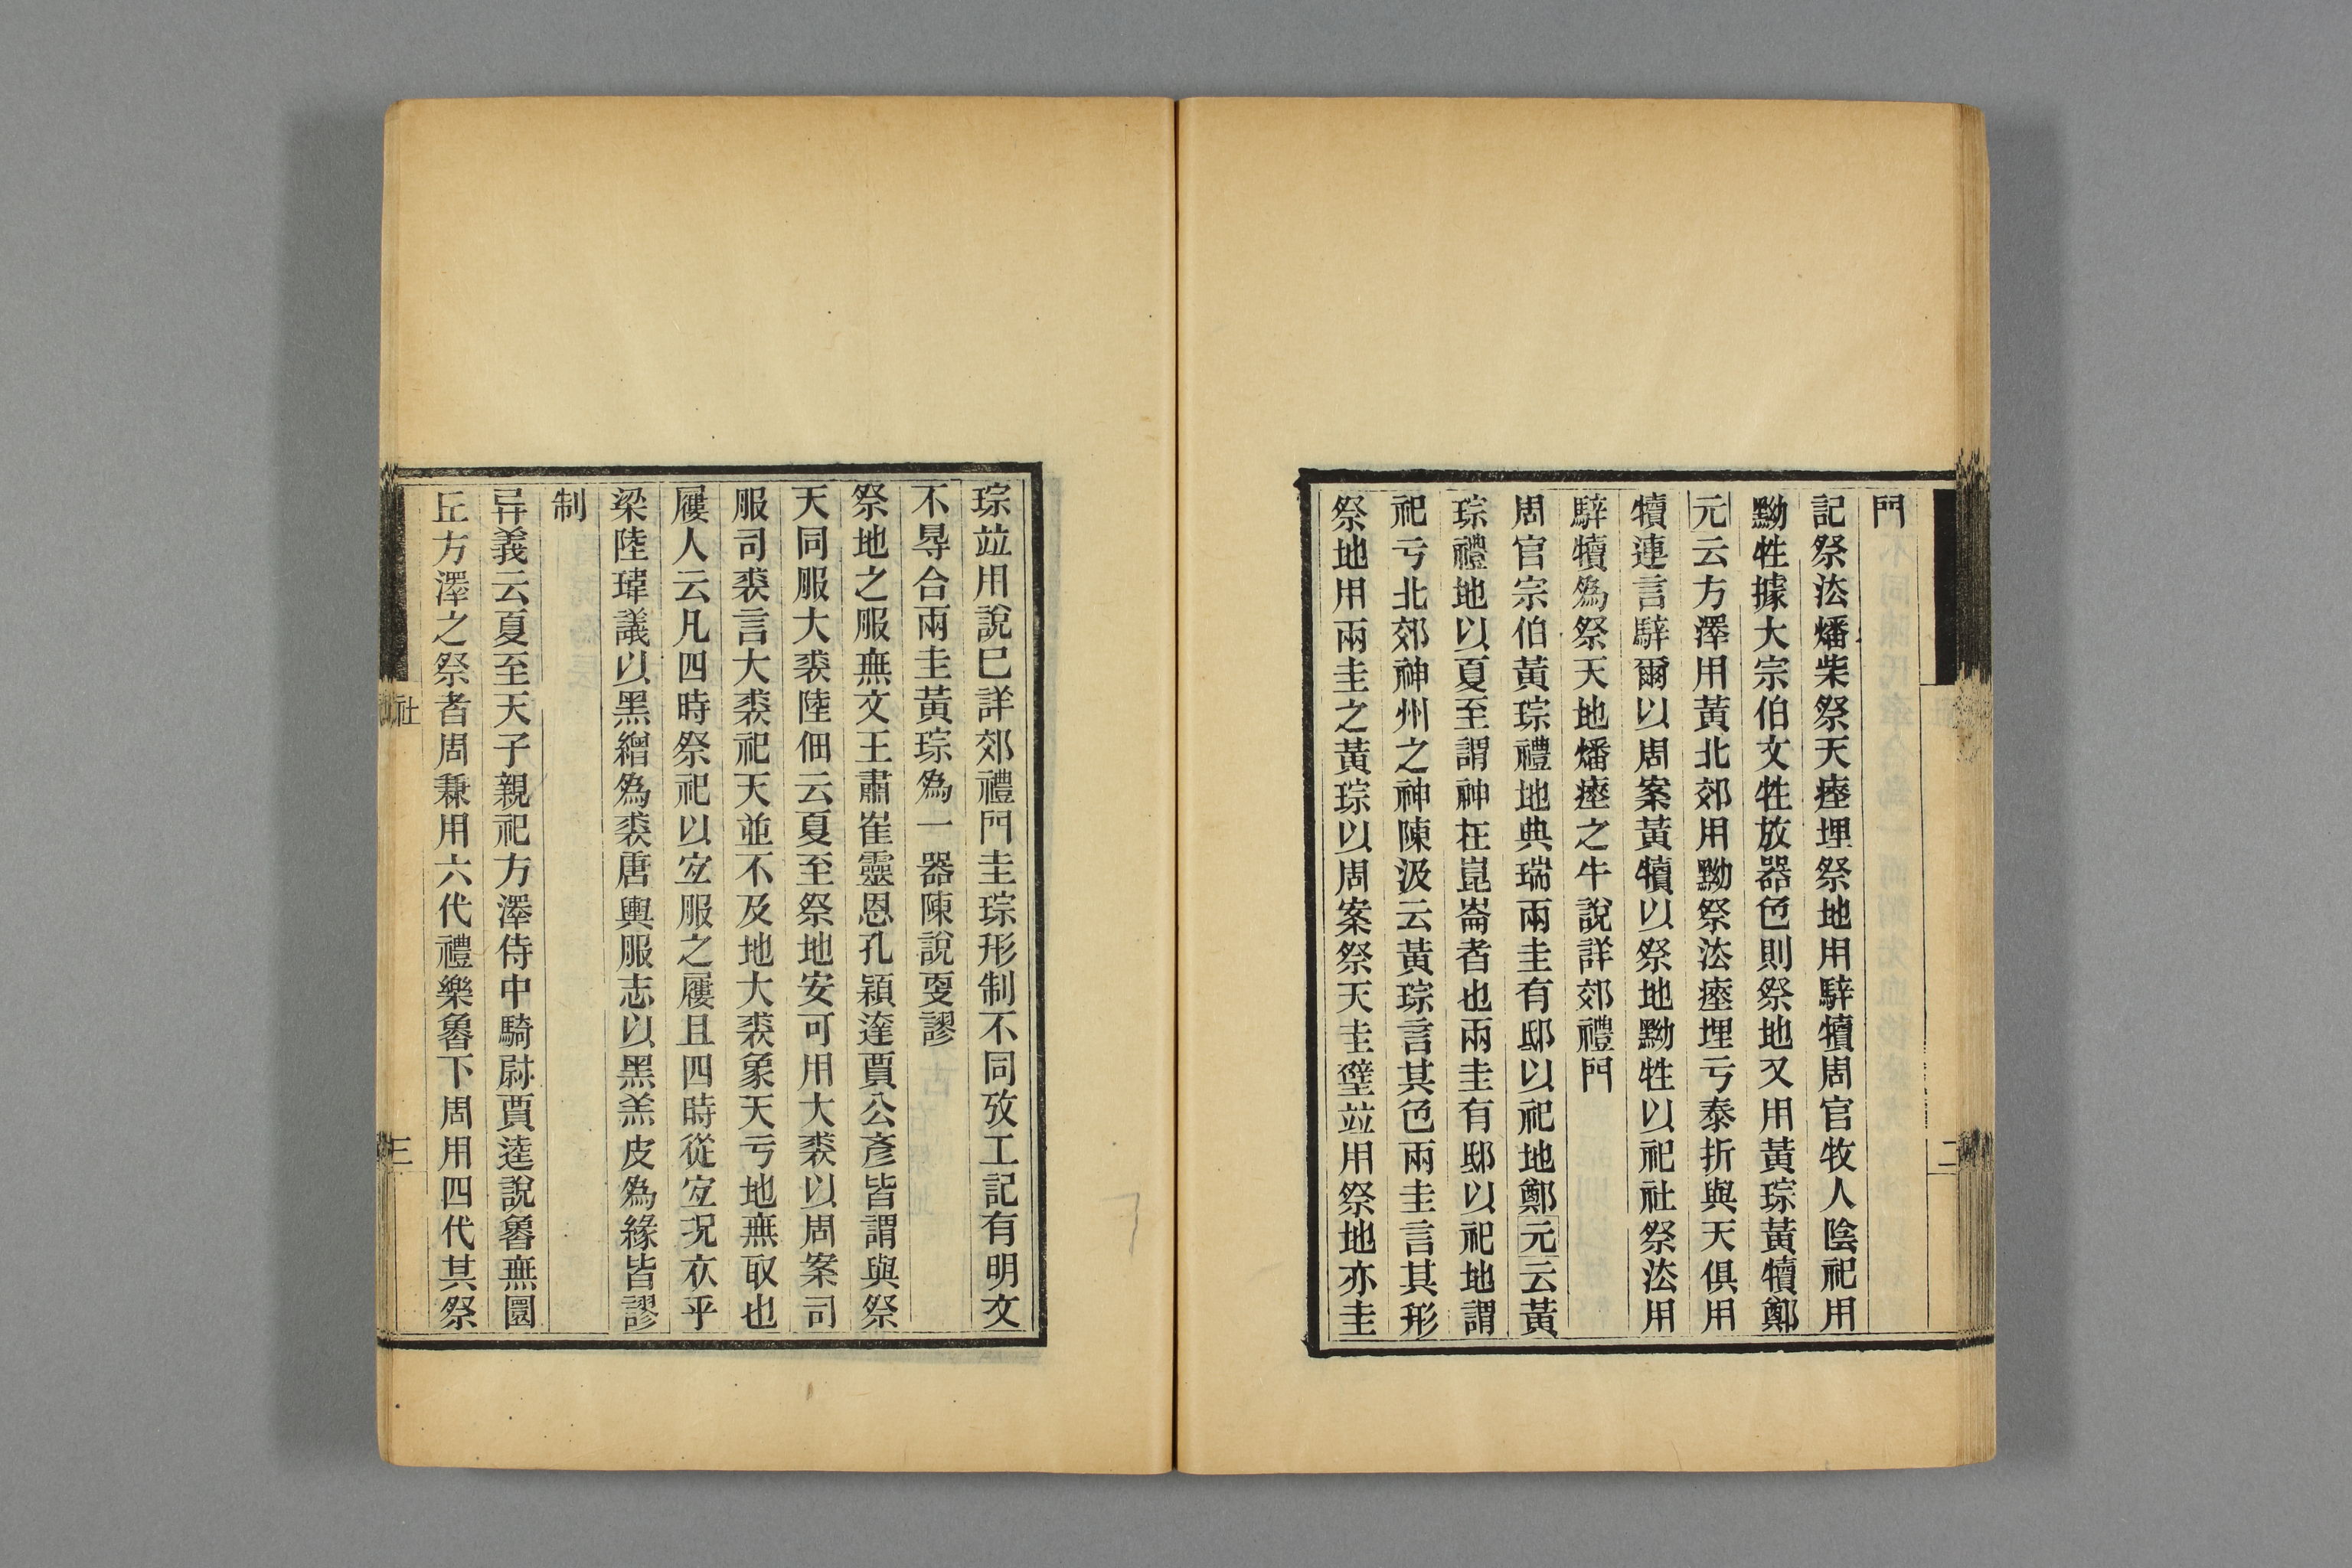 門
記祭法燔柴祭天瘞埋祭地用騂犢周官牧人陰祀用
黝牲據大宗伯文牲放器色則祭地又用黃琮黃犢鄭
元云方澤用黃北郊用黝祭法瘞埋亏泰折與天俱用
犢連言騂爾以周案黃犢以祭地黝牲以祀社祭法用
騂犢爲祭天地燔瘞之牛說詳郊禮門
周官宗伯黃琮禮地典瑞兩圭有邸以祀地鄭元云黃
琮禮地以夏至謂神在崑崙者也兩圭有邸以祀地謂
祀亏北郊神州之神陳汲云黃琮言其色兩圭言其形
祭地用兩圭之黃琮以周案祭天圭璧竝用祭地亦圭
二
琮竝用說巳詳郊禮門圭琮形制不同攷工記有明文
不㝵合兩圭黃琮爲一器陳說㪅謬
祭地之服無文王肅崔靈恩孔穎達賈公彥皆謂與祭
天同服大裘陸佃云夏至祭地安可用大裘以周案司
服司裘言大裘祀天並不及地大裘象天亏地無取也
屨人云凡四時祭祀以宐服之屨且四時從宐況衣乎
梁陸瑋議以黑繒爲裘唐輿服志以黑羔皮爲緣皆謬
制
异義云夏至天子親祀方澤侍中騎尉賈逵說魯無圜
丘方澤之祭者周兼用六代禮樂魯下周用四代其祭
社
三